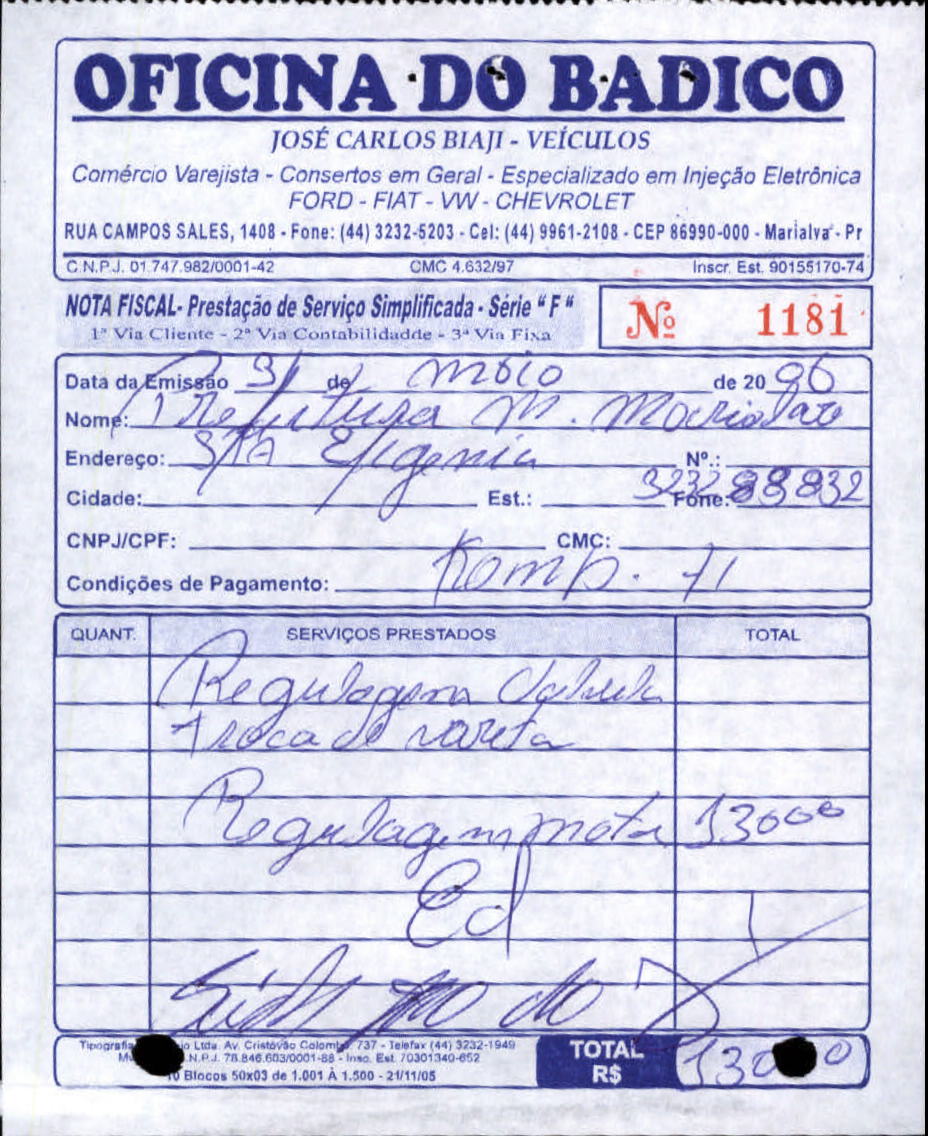 OFICINA DO BADICO
JOSÉ CARLOS BIAJI - VEÍCULOS
Comércio Varejista - Consertos em Geral - Especializado em Injeção Eletrônica
FORD - FIAT - VW - CHEVROLET
RUA CAMPOS SALES, 1408 - Fone: (44) 3232-5203 - Cel: (44) 9961-2108 - CEP 86990-000 - Marialva - Pr
C.N.P.J. 01.747.982/0001-42 CMC 4.632/97 Inscr. Est. 90155170-74
NOTA FISCAL- Prestação de Serviço Simplificada - Série " F "
1ª Via Cliente - 2ª Via Contabilidadde - 3ª Via Fixa
Nº 1181
Data da Emissão 31 de Maio de 20 06
Nome: Prefeitura M.
Endereço: STA Efigenia Nº.:
Cidade: Est.: Fone: 3232 88832
CNPJ/CPF: CMC:
Condições de Pagamento: Komp. 71
QUANT. SERVIÇOS PRESTADOS TOTAL
Regulagem Valvula
Troca de vareta
Regulagem motor 13000
Ed
Tipografia Ltda. Av. Cristóvão Colombo, 737 - Telefax (44) 3232-1949
N.P.J. 78.846.603/0001-88 - Insc. Est. 70301340-652
10 Blocos 50x03 de 1.001 À 1.500 - 21/11/05
TOTAL R$ 130